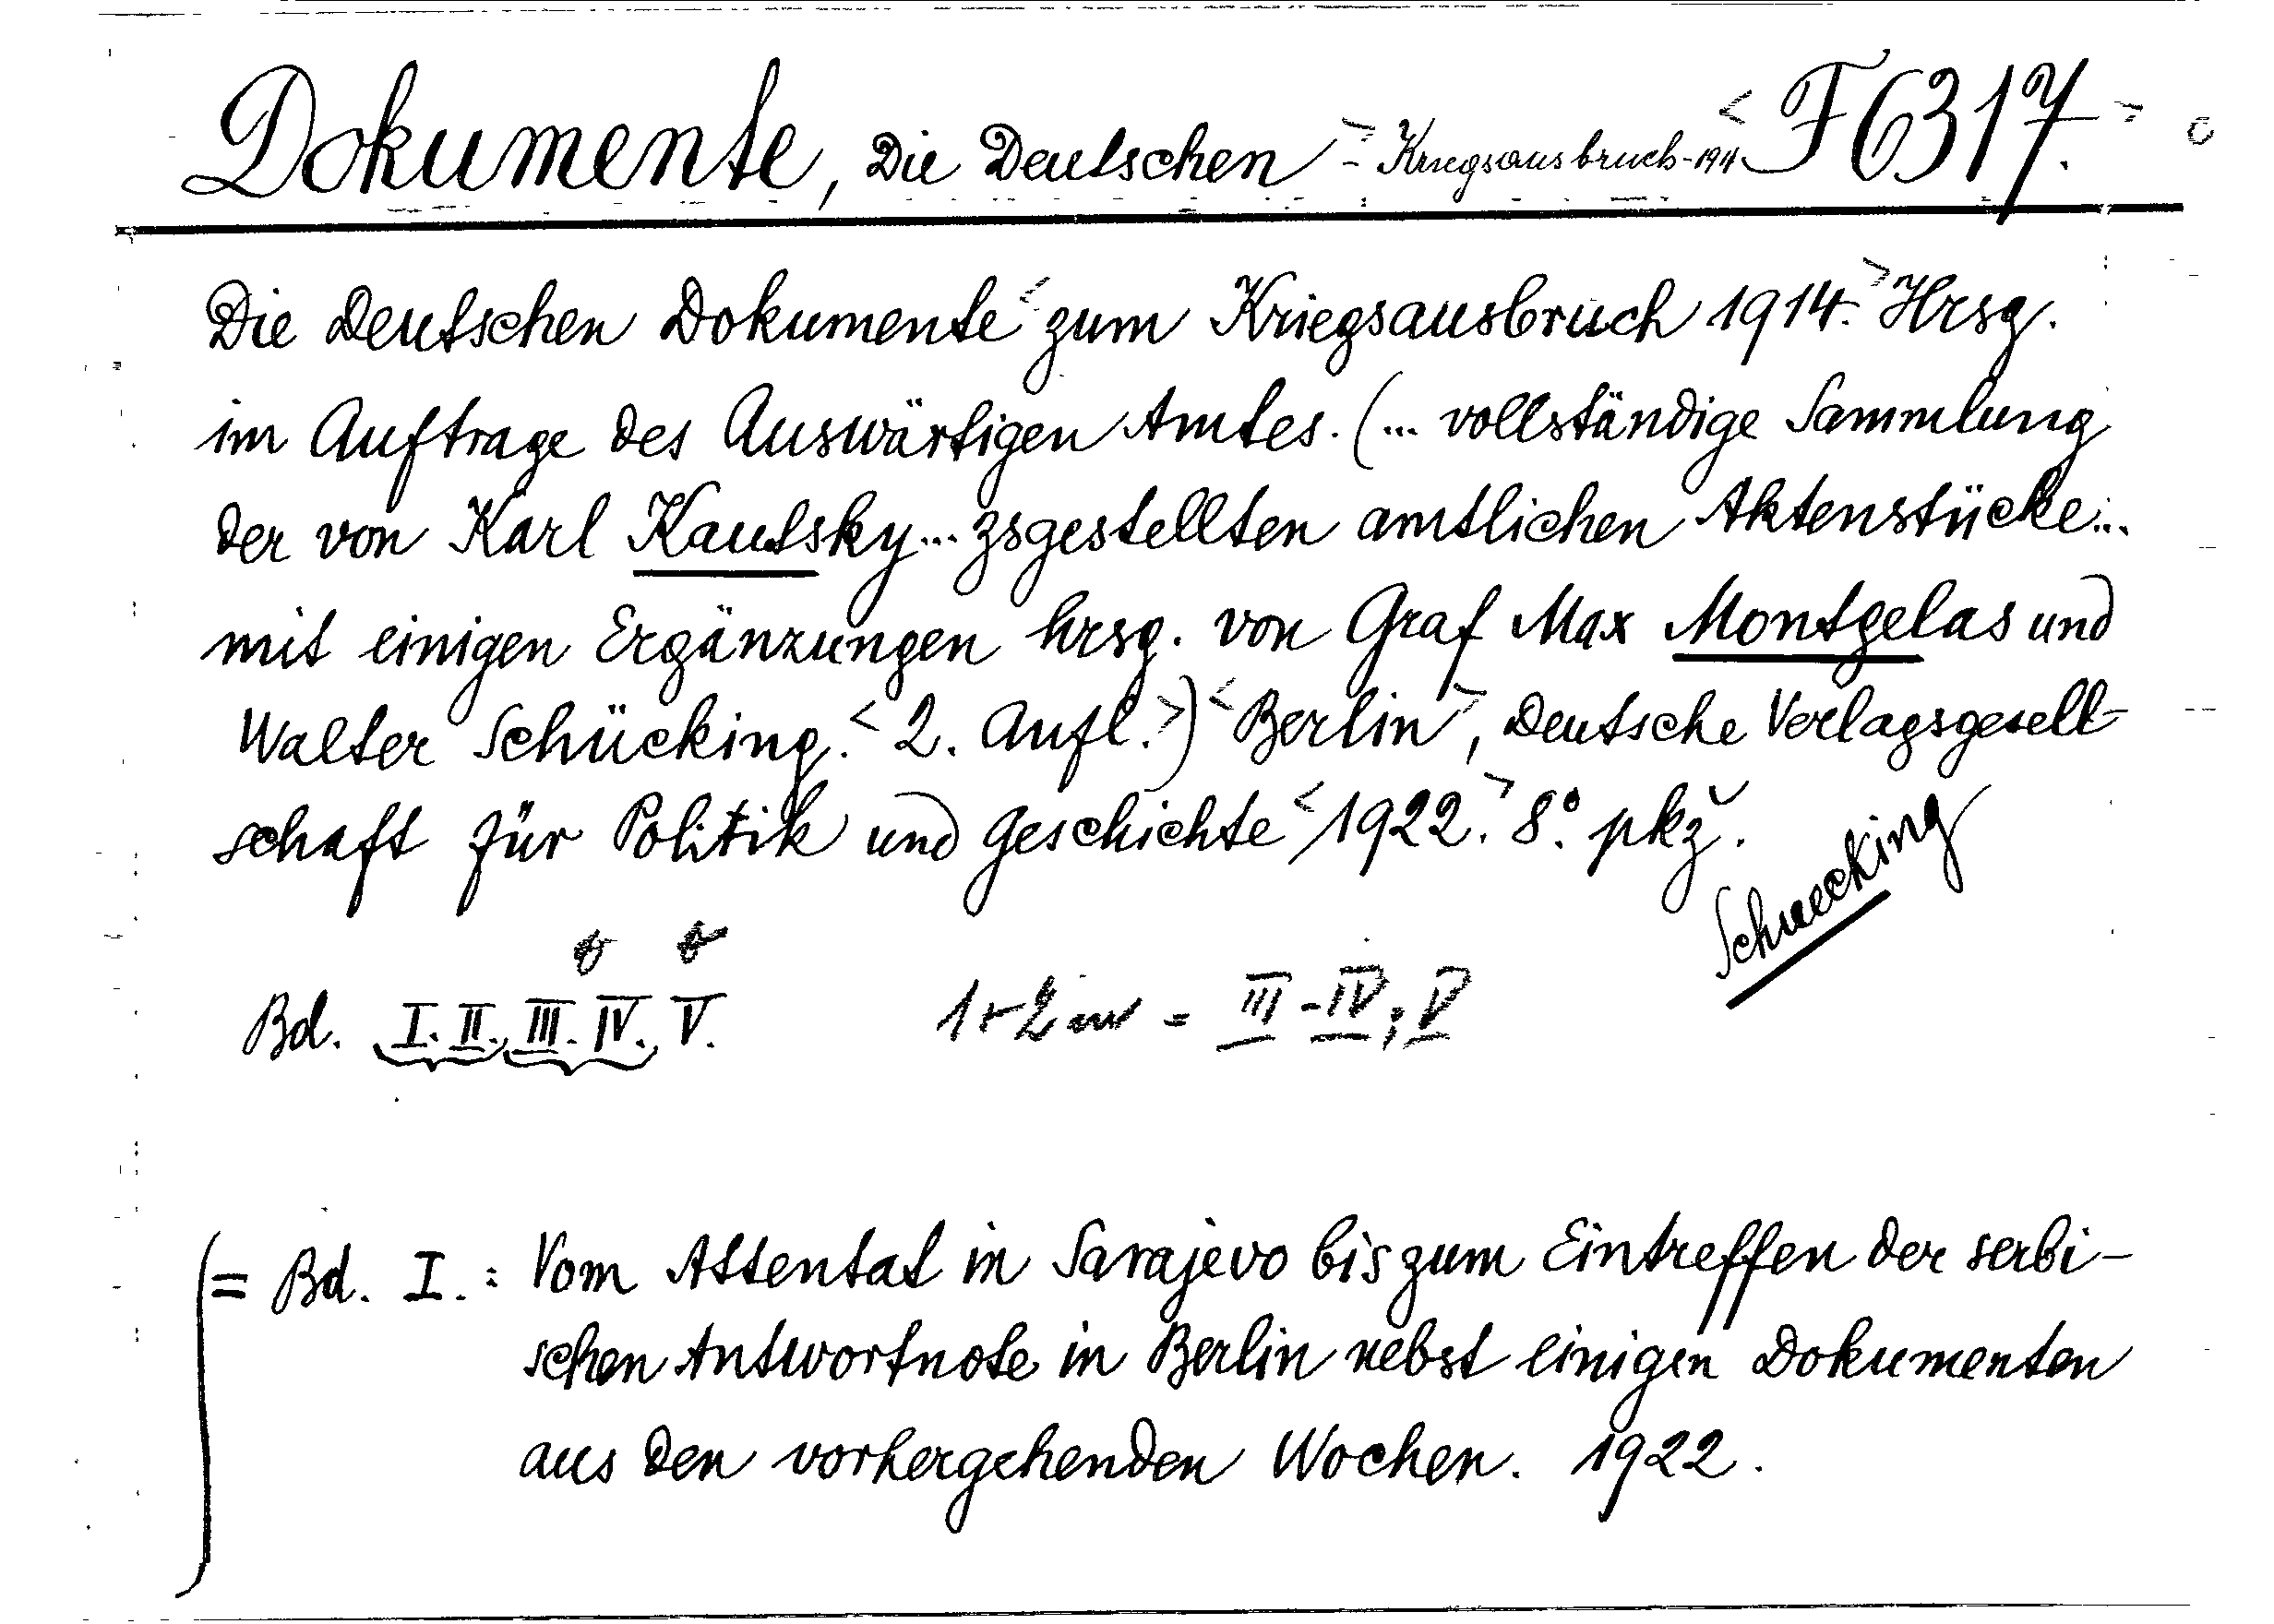 Dokumente, Die Deutschen - Kriegsausbruch - 1914 <F 6317.>
Die Deutschen Dokumente <zum Kriegsausbruch 1914.> Hrsg.
im Auftrage des Auswärtigen Amtes. (... vollständige Sammlung
der von Karl Kautsky... zsgestellten amtlichen Aktenstücke...
mit einigen Ergänzungen hrsg. von Graf Max Montgelas und
Walter Schücking. <2. Aufl.>) <Berlin>, Deutsche Verlagsgesell-
schaft für Politik und Geschichte <1922.> 8°. pkž.
Schuecking
Bd. I. II., III. IV., V.
1 + 2 = III - IV; V
= Bd. I.: Vom Attentat in Sarajevo bis zum Eintreffen der serbi-
schen Antwortnote in Berlin nebst einigen Dokumenten
aus den vorhergehenden Wochen. 1922.